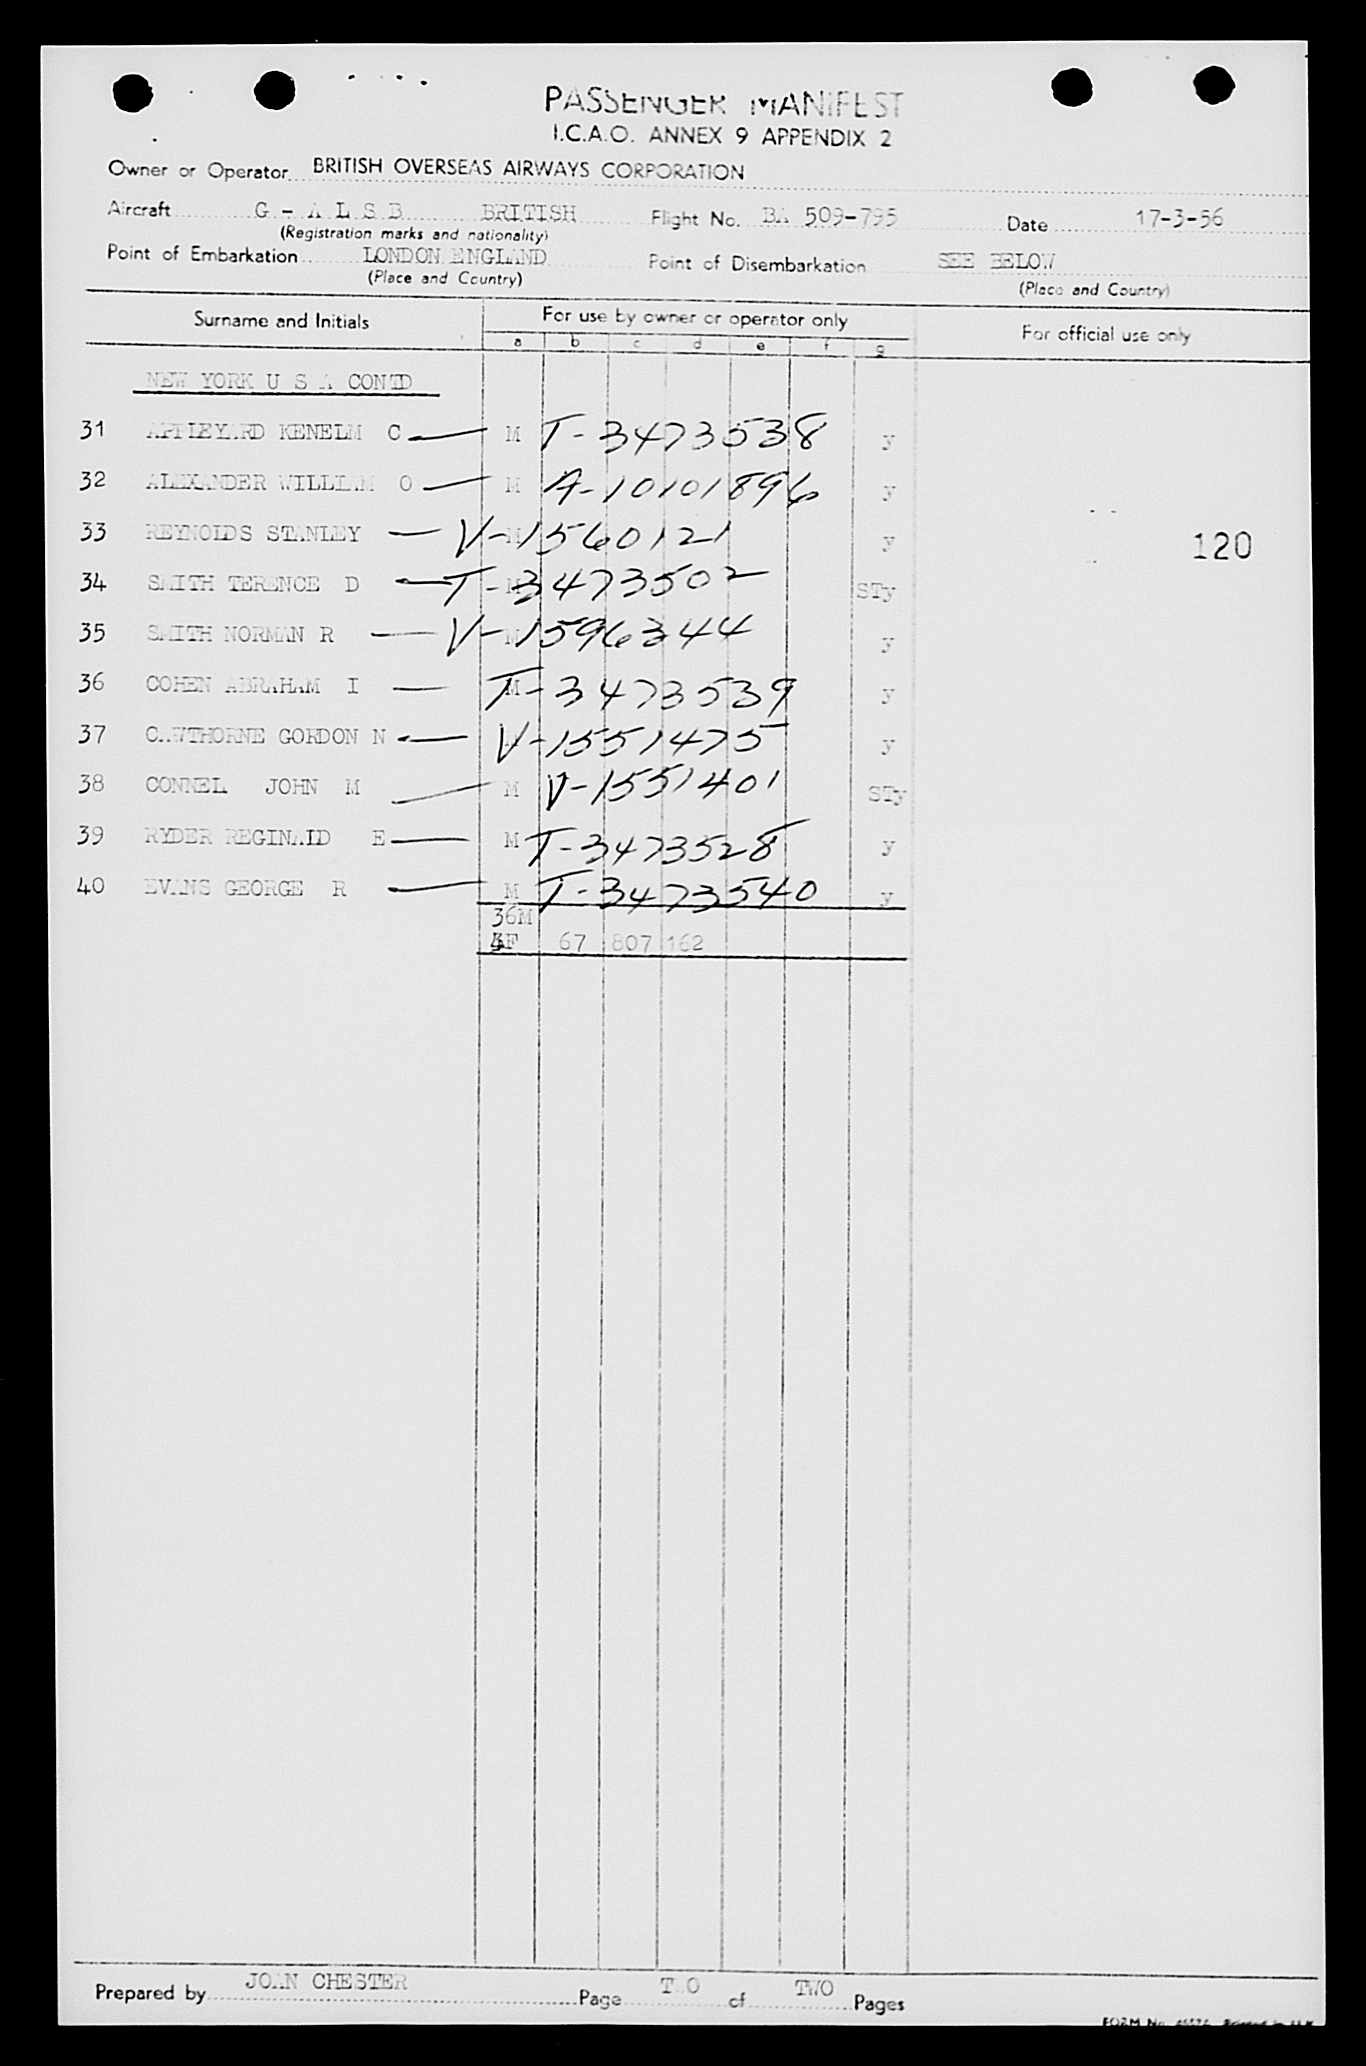 PASSENGER MANIFEST
I.C.A.O. ANNEX 9 APPENDIX 2
Owner or Operator BRITISH OVERSEAS AIRWAYS CORPORATION
Aircraft G - A L S B BRITISH Flight No. BA 509-795 Date 17-3-56
(Registration marks and nationality)
Point of Embarkation LONDON ENGLAND Point of Disembarkation SEE BELOW
(Place and Country) (Place and Country)
Surname and Initials For use by owner or operator only For official use only
a b c d e f g
NEW YORK U S A CONTD
31 APPLEYARD KENELM C M T-3473538 y
32 ALEXANDER WILLIAM O M A-10101896 y
33 REYNOLDS STANLEY M V-1560121 y 120
34 SMITH TERENCE D M T-3473502 STy
35 SMITH NORMAN R M V-1596344 y
36 COHEN ABRAHAM I M T-3473539 y
37 CAWTHORNE GORDON N V-1551475 y
38 CONNEL JOHN M M V-1551401 STy
39 RYDER REGINALD E M T-3473528 y
40 EVANS GEORGE R M T-3473540 y
36M
4F 67 807 162
Prepared by JOAN CHESTER Page TWO of TWO Pages
FORM No.